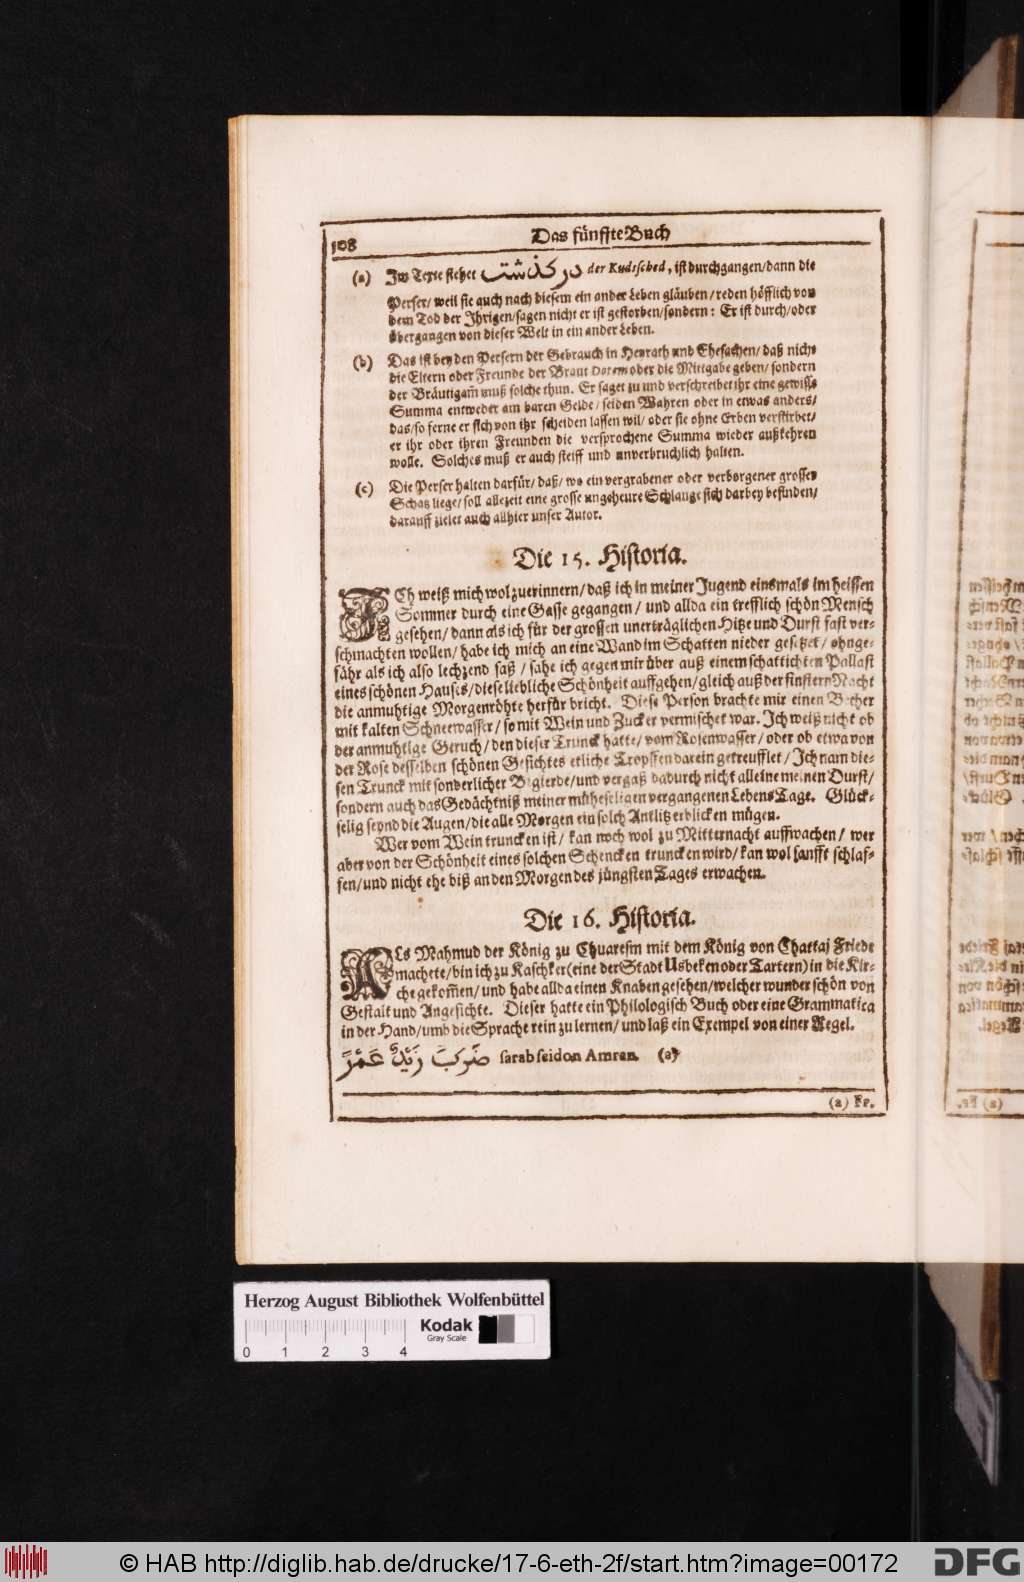 108
Das fünffte Buch
(a) Im Texte stehet درگذشت der Kudesched, ist durchgangen/dann die
Perser/ weil sie auch nach diesem ein ander Leben gläuben/reden höfflich von
dem Tod der Ihrigen/sagen nicht er ist gestorben/sondern: Er ist durch/oder
übergangen von dieser Welt in ein ander Leben.
(b) Das ist bey den Persern der Gebrauch in Heyrath und Ehesachen/ daß nicht
die Eltern oder Freunde der Braut Dotem oder die Mittgabe geben/ sondern
der Bräutigam̄ muß solche thun. Er saget zu und verschreibet ihr eine gewisse
Summa entweder am baren Gelde/ seiden Wahren oder in etwas anders/
das/so ferne er sich von ihr scheiden lassen wil/ oder sie ohne Erben verstirbet/
er ihr oder ihren Freunden die versprochene Summa wieder außkehren
wolle. Solches muß er auch steiff und unverbruchlich halten.
(c) Die Perser halten darfür/ daß/ wo ein vergrabener oder verborgener grosser
Schatz liege/ soll allezeit eine grosse ungeheure Schlange sich darbey befinden/
darauff zielet auch allhier unser Autor.
Die 15. Historia.
ICh weiß mich wol zuerinnern/daß ich in meiner Jugend einsmals im heissen
Sommer durch eine Gasse gegangen/ und allda ein trefflich schön Mensch
gesehen/dann als ich für der grossen unerträglichen Hitze und Durst fast ver-
schmachten wollen/ habe ich mich an eine Wand im Schatten nieder gesetzet/ ohnge-
fähr als ich also lechzend saß/ sahe ich gegen mir über auß einem schattichten Pallast
eines schönen Hauses/diese liebliche Schönheit auffgehen/gleich auß der finstern Nacht
die anmuhtige Morgenröhte herfür bricht. Diese Person brachte mir einen Becher
mit kalten Schneewasser/ so mit Wein und Zucker vermischet war. Ich weiß nicht ob
der anmuhtige Geruch/den dieser Trunck hatte/ vom Rosenwasser/ oder ob etwa von
der Rose desselben schönen Gesichtes etliche Tropffen darein getreufflet/ Ich nam die-
sen Trunck mit sonderlicher Begierde/und vergaß dadurch nicht alleine meinen Durst/
sondern auch das Gedächtniß meiner müheseligen vergangenen Lebens Tage. Glück-
selig seynd die Augen/die alle Morgen ein solch Antlitz erblicken mügen.
Wer vom Wein truncken ist/ kan noch wol zu Mitternacht auffwachen/ wer
aber von der Schönheit eines solchen Schencken truncken wird/ kan wol sanfft schlaf-
fen/und nicht ehe biß an den Morgen des jüngsten Tages erwachen.
Die 16. Historia.
ALs Mahmud der König zu Chuaresm mit dem König von Chattaj Friede
machete/bin ich zu Kaschker(eine der Stadt Usbeken oder Tartern) in die Kir-
che gekom̄en/ und habe allda einen Knaben gesehen/welcher wunder schön von
Gestalt und Angesichte. Dieser hatte ein Philologisch Buch oder eine Grammatica
in der Hand/umb die Sprache rein zu lernen/ und laß ein Exempel von einer Regel.
ضَرَبَ زَيْدٌ عَمْرًا sarab seidon Amran. (a)
(a) Fr.
Herzog August Bibliothek Wolfenbüttel
Kodak
Gray Scale
0 1 2 3 4
© HAB http://diglib.hab.de/drucke/17-6-eth-2f/start.htm?image=00172
DFG